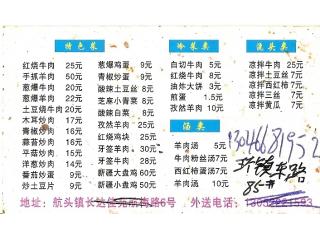 特色菜
红烧牛肉 25元
手抓羊肉 50元
葱爆羊肉 25元
葱爆牛肉 25元
土豆烧牛肉 20元
木耳炒肉 17元
青椒炒肉 16元
蒜苔炒肉 16元
芹菜炒肉 16元
洋葱炒肉 15元
番茄炒蛋 9元
炒土豆片 9元
葱爆鸡蛋 9元
青椒炒蛋 9元
酸辣土豆丝 8元
芝麻小青菜 8元
酸辣白菜 8元
孜然羊肉 25元
孜然牛肉 25元
牙签羊肉 30元
牙签牛肉 30元
新疆大盘鸡
新疆小盘鸡
冷菜类
白切牛肉 5元
红烧牛肉 8元
油炸大饼 3元
煎蛋 1.5元
孜然羊肉 10元
汤类
羊肉汤 5元
牛肉粉丝汤 7元
西红柿蛋汤
新疆羊肉汤
浇头类
凉拌牛肉 25元
凉拌土豆丝 7元
凉拌西红柿 7元
凉拌三丝 7元
凉拌黄瓜 7元
1304668195
85#
地址：航头镇长达 6号 外送电话：13052221593